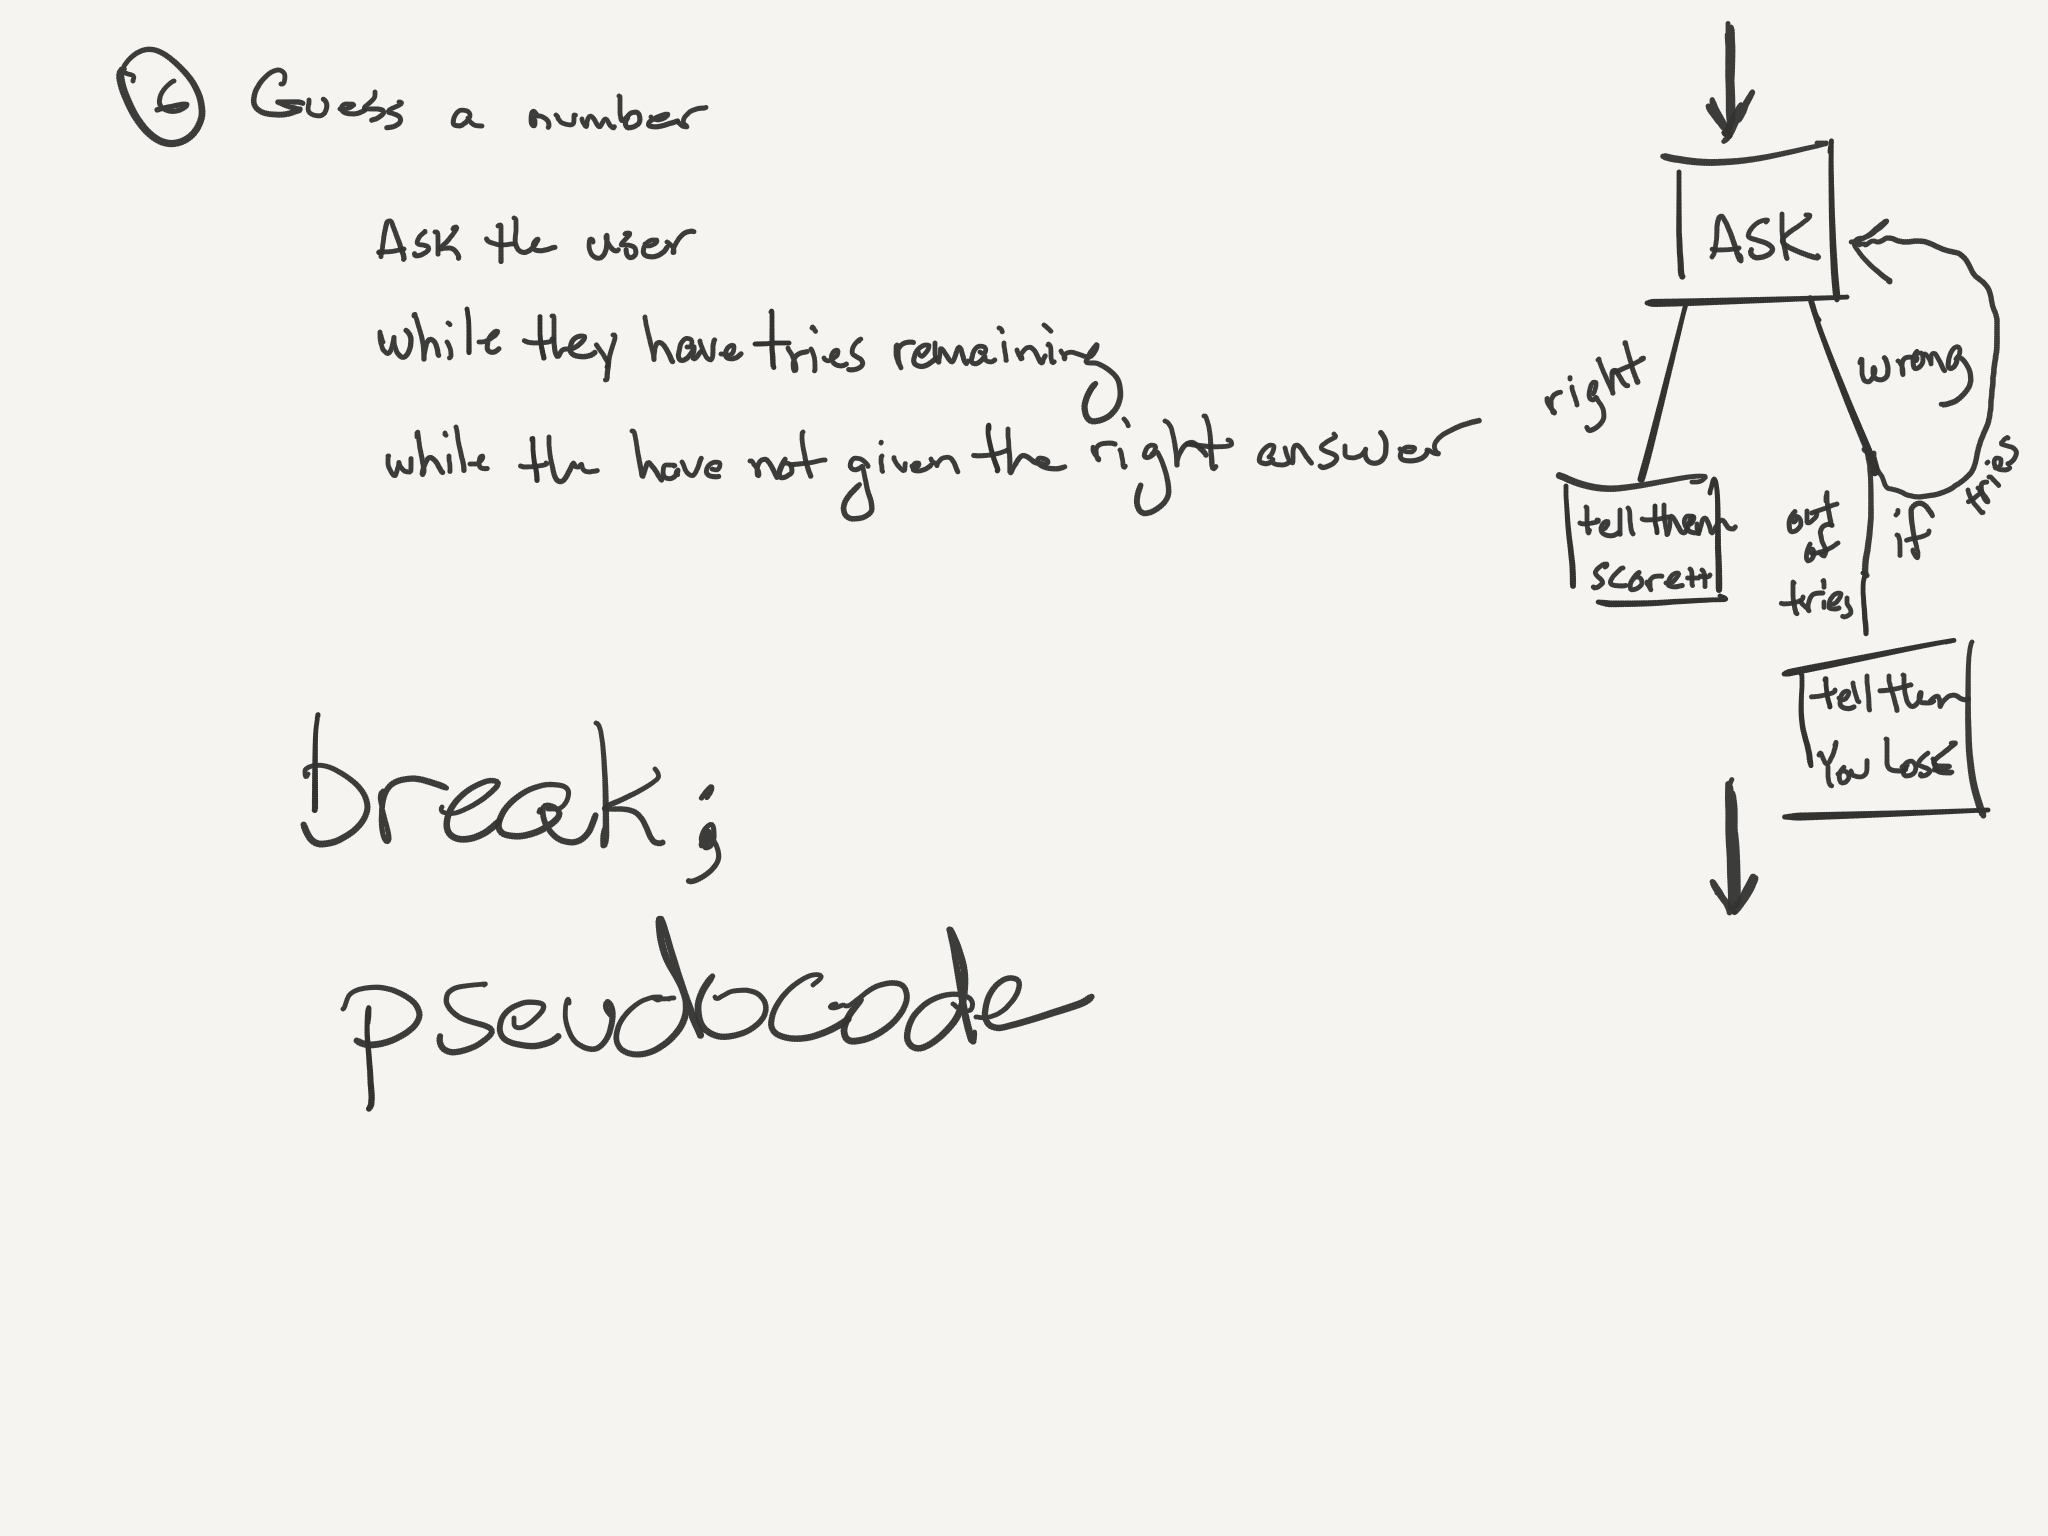 6 Guess a number
Ask the user
while they have tries remaining
while the have not given the right answer
break;
pseudocode
ASK
right
wrong
tell them
score++
out
of
tries
if
tries
tell them
You Lose